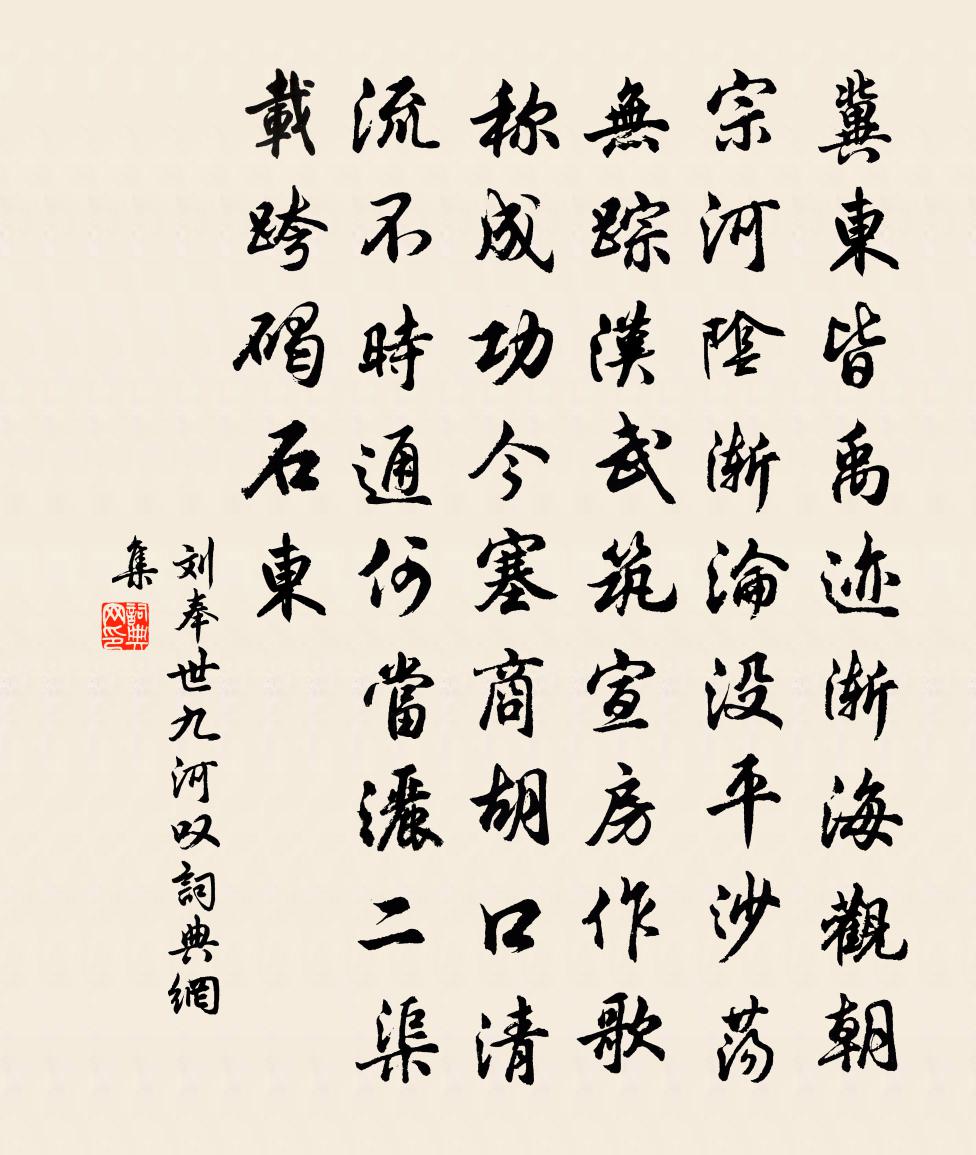 冀東皆禹迹漸海觀朝
宗河陰漸淪没平沙荡
無踪漢武筑宣房作歌
称成功今塞商胡口清
流不時通何當灑二渠
載跨碣石東
刘奉世九河叹詞典網
集
詞典
网印